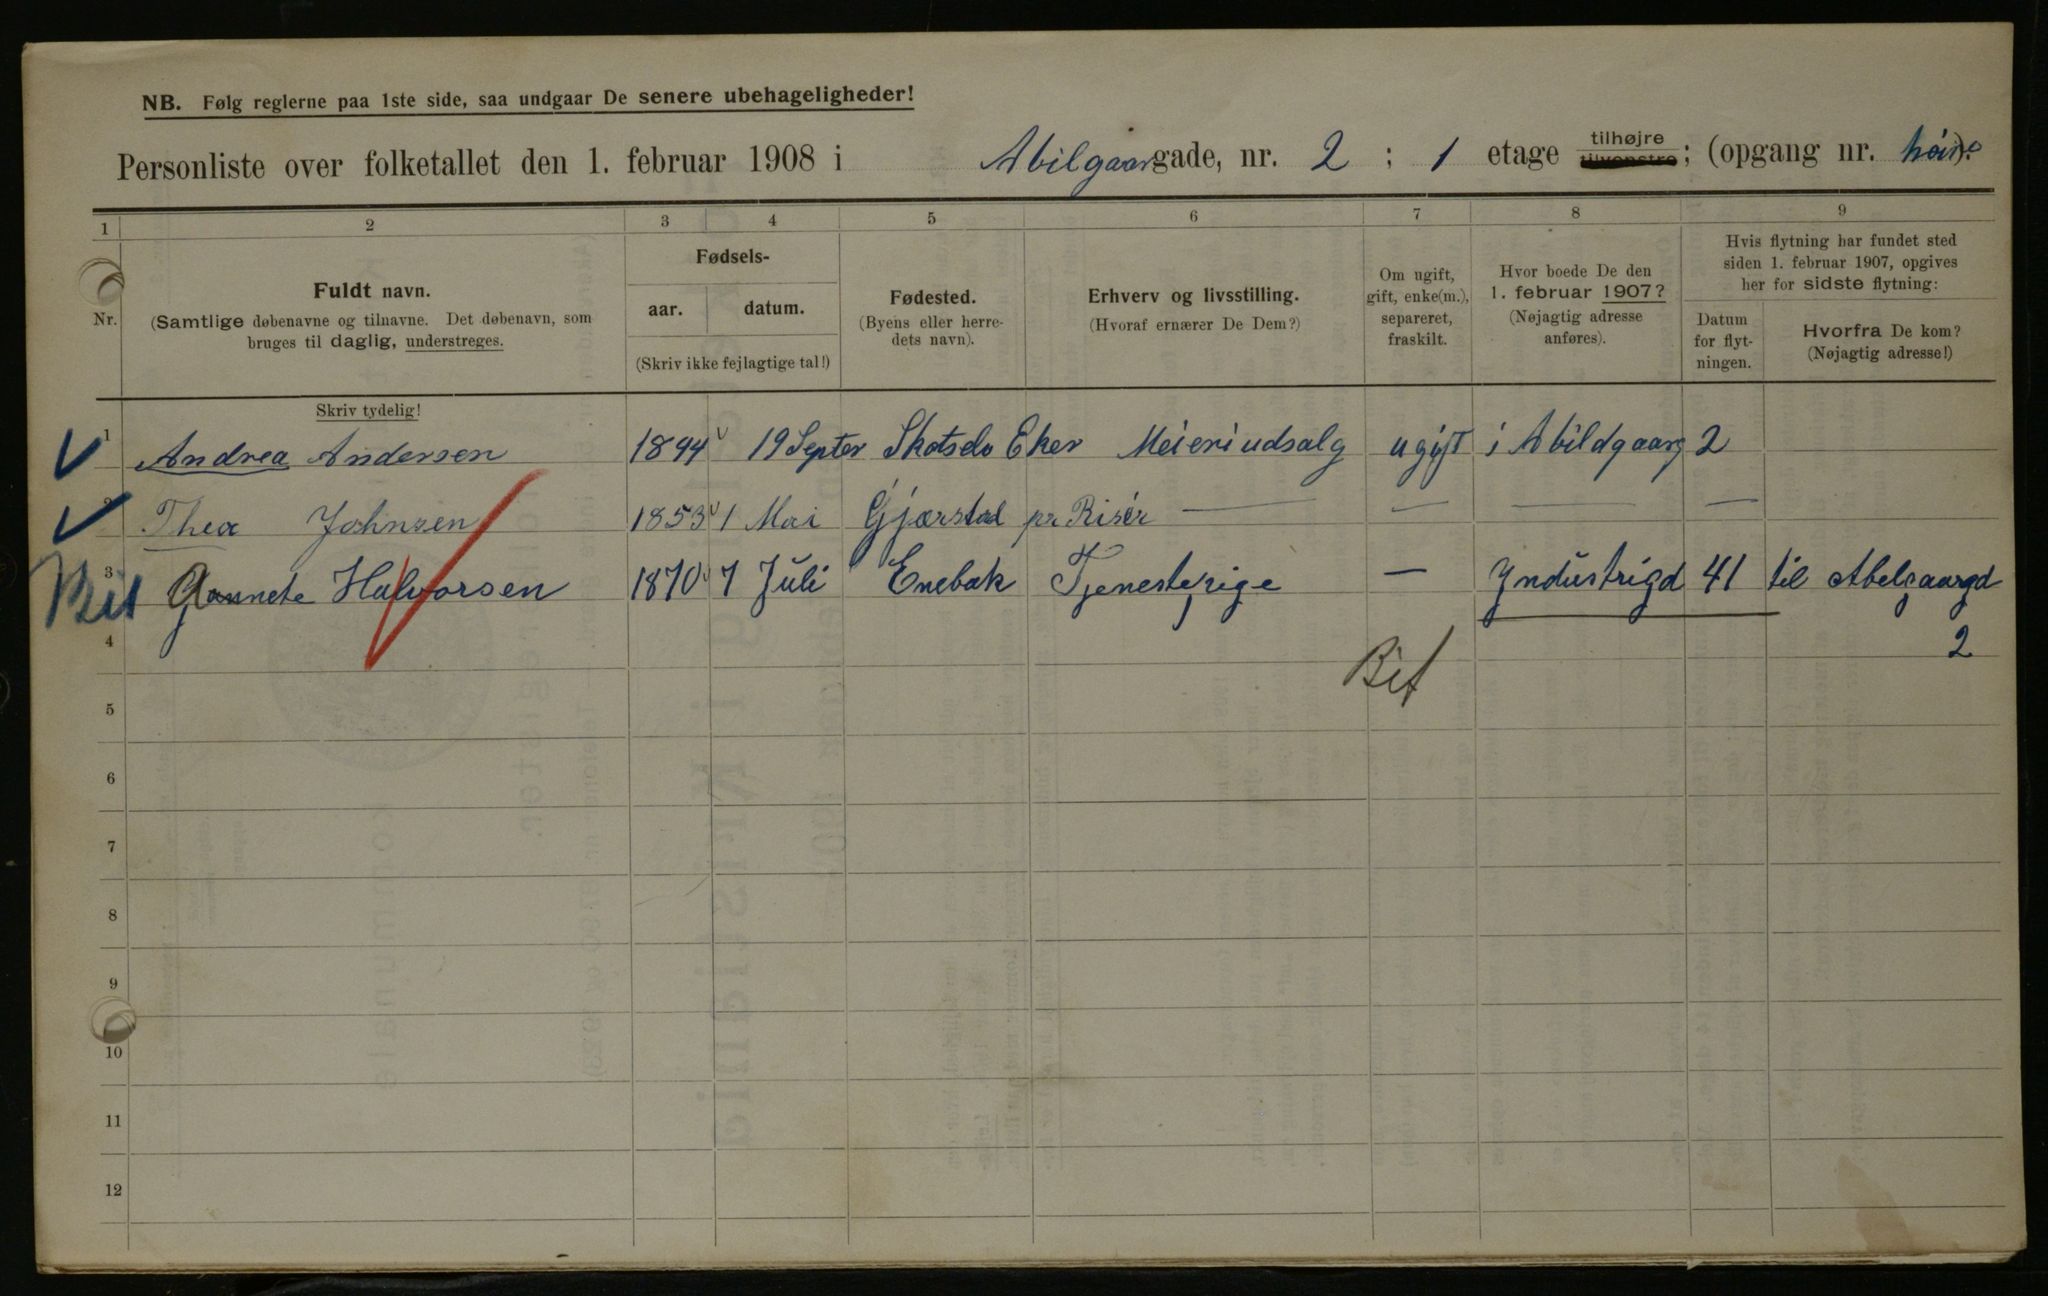 NB. Følg reglerne paa 1ste side, saa undgaar De senere ubehageligheder!
Personliste over folketallet den 1. februar 1908 i Abilgaargade, nr. 2 ; 1 etage tilhøjre tilvenstre; (opgang nr. høire).
1 2 3 4 5 6 7 8 9
Nr.
Fuldt navn.
(Samtlige døbenavne og tilnavne. Det døbenavn, som
bruges til daglig, understreges.
Fødsels-
aar. datum.
(Skriv ikke fejlagtige tal!)
Fødested.
(Byens eller herre-
dets navn).
Erhverv og livsstilling.
(Hvoraf ernærer De Dem?)
Om ugift,
gift, enke(m.),
separeret,
fraskilt.
Hvor boede De den
1. februar 1907?
(Nøjagtig adresse
anføres).
Hvis flytning har fundet sted
siden 1. februar 1907, opgives
her for sidste flytning:
Datum
for flyt-
ningen.
Hvorfra De kom?
(Nøjagtig adresse!)
Skriv tydelig!
1 Andrea Andersen 1844 19 Septer Skotselv Eker Meieriudsalg ugift i Abildgaarg 2
2 Thea Johnsen 1853 1 Mai Gjærstad pr Risér — — — —
Bit 3 Gannete Halvorsen 1870 7 Juli Enebak Tjenestepige — Yndustrigd 41 til Abelgaargd
4 2
Bit
5
6
7
8
9
10
11
12